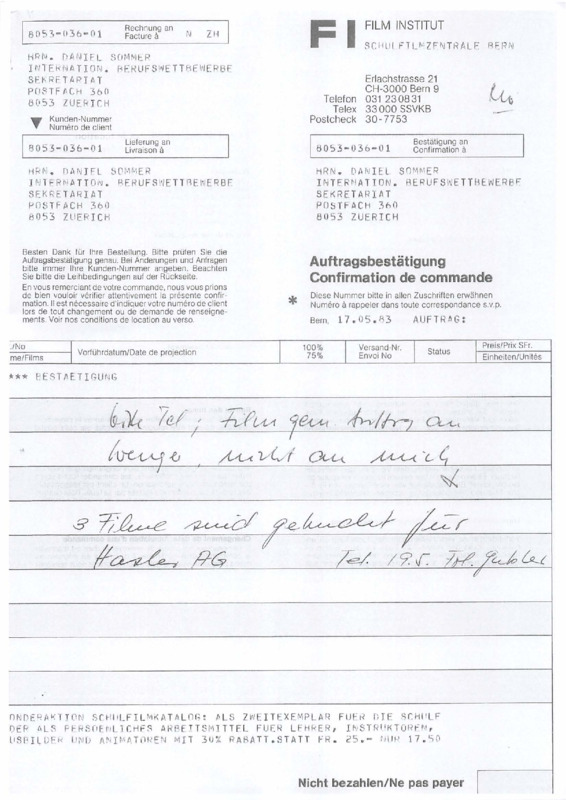 8053-036-01
Rechnung an
Facture à
N ZH
HRN. DANIEL SOMMER
INTERNATION. BERUFSWETTBEWERBE
SEKRETARIAT
POSTFACH 360
8053 ZUERICH
Kunden-Nummer
Numéro de client
FI FILM INSTITUT
SCHULFILMZENTRALE BERN
Erlachstrasse 21
CH-3000 Bern 9
Telefon 031 23 08 31
Telex 33 000 SSVKB
Postcheck 30-7753
8053-036-01
Lieferung an
Livraison à
HRN. DANIEL SOMMER
INTERNATION. BERUFSWETTBEWERBE
SEKRETARIAT
POSTFACH 360
8053 ZUERICH
8053-036-01
Bestätigung an
Confirmation à
HRN. DANIEL SOMMER
INTERNATION. BERUFSWETTBEWERBE
SEKRETARIAT
POSTFACH 360
8053 ZUERICH
Besten Dank für Ihre Bestellung. Bitte prüfen Sie die
Auftragsbestätigung genau. Bei Änderungen und Anfragen
bitte immer Ihre Kunden-Nummer angeben. Beachten
Sie bitte die Leihbedingungen auf der Rückseite.
En vous remerciant de votre commande, nous vous prions
de bien vouloir vérifier attentivement la présente confir-
mation. Il est nécessaire d'indiquer votre numéro de client
lors de tout changement ou de demande de renseigne-
ments. Voir nos conditions de location au verso.
Auftragsbestätigung
Confirmation de commande
* Diese Nummer bitte in allen Zuschriften erwähnen
Numéro à rappeler dans toute correspondance s.v.p.
Bern, 17.05.83 AUFTRAG:
./No
me/Films
Vorführdatum/Date de projection
100%
75%
Versand-Nr.
Envoi No
Status
Preis/Prix SFr.
Einheiten/Unités
*** BESTAETIGUNG
bitte Tel; Film gem Auftrag an
Wenger, nicht an mich
3 Filme sind gebucht für
Hasler AG Tel. 19.5. Frl.
ONDERAKTION SCHULFILMKATALOG: ALS ZWEITEXEMPLAR FUER DIE SCHULE
DER ALS PERSOENLICHES ARBEITSMITTEL FUER LEHRER, INSTRUKTOREN,
USBILDER UND ANIMATOREN MIT 30% RABATT.STATT FR. 25.- NUR 17.50
Nicht bezahlen/Ne pas payer